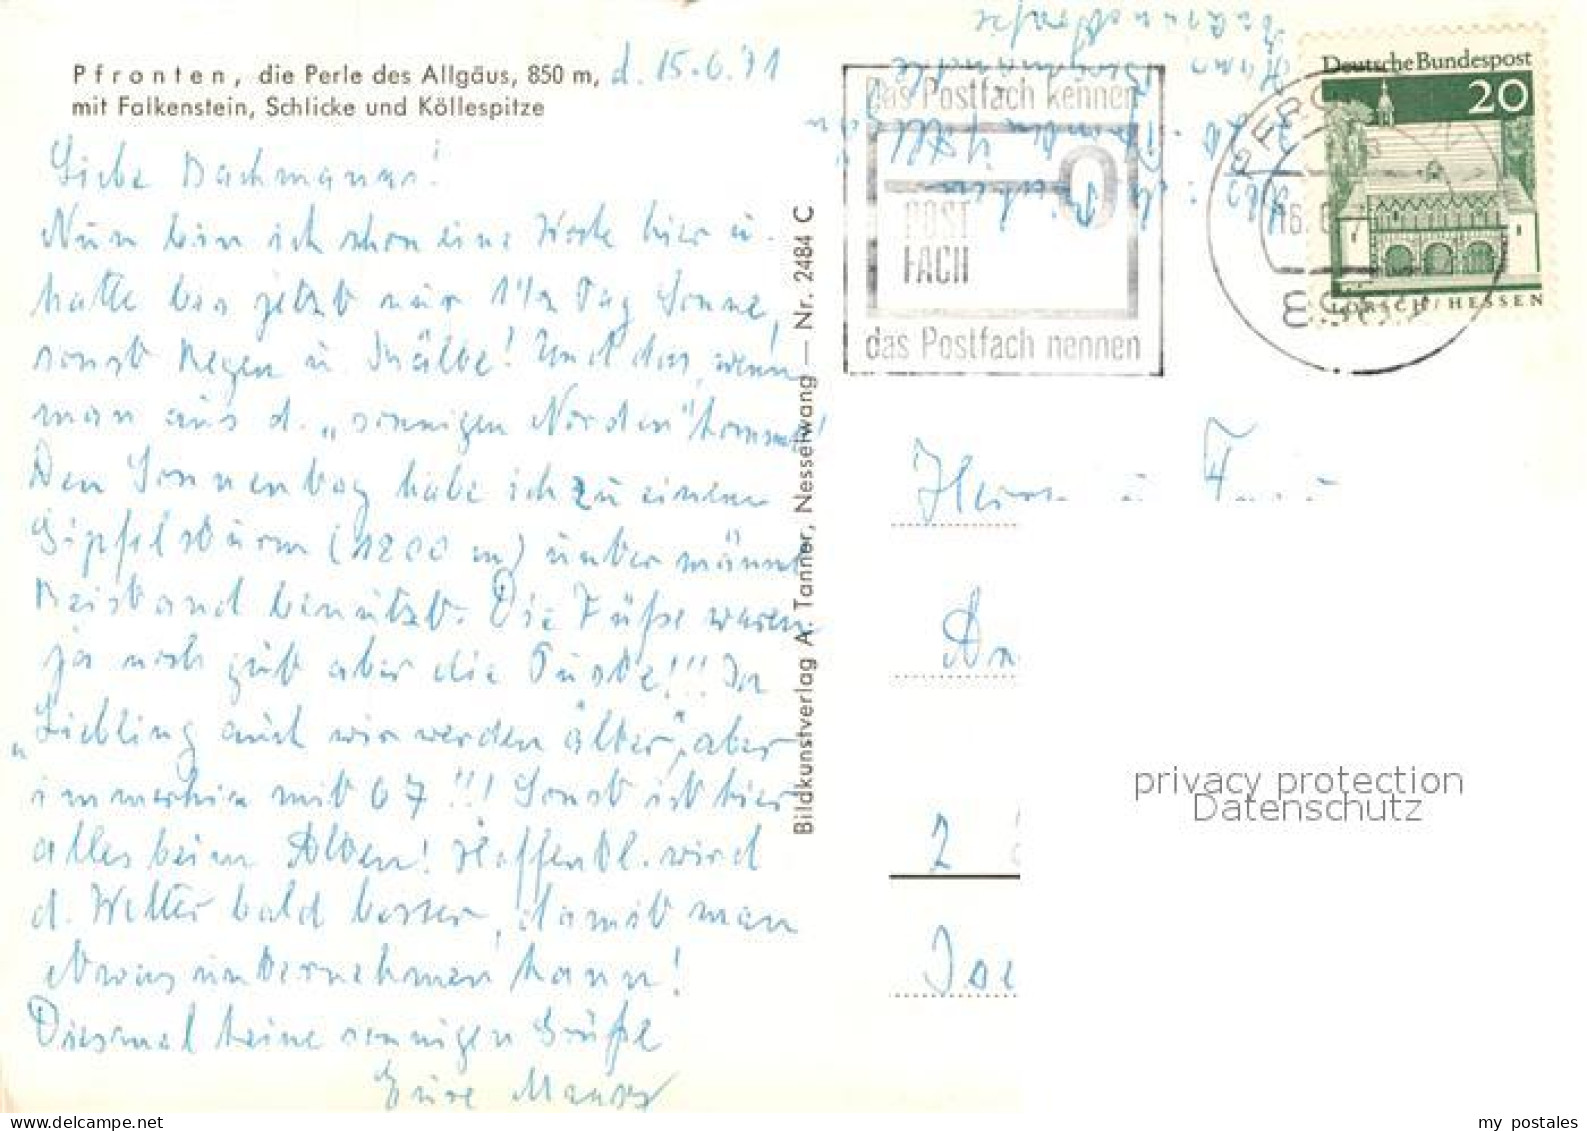 Pfronten, die Perle des Allgäus, 850 m, d. 15.6.71
mit Falkenstein, Schlicke und Köllespitze
Liebe Bachmanns!
Nun bin ich schon eine Woche hier u.
hatte bis jetzt nur 1 1/2 Tag Sonne,
sonst Regen u. Kälte! Und das, wenn
man aus d. „sonnigen Norden" kommt!
Den Sonnentag habe ich zu einem
Gipfelsturm (1800 m) unter männl.
Beistand benützt. Die Füße waren
ja noch gut aber die Puste!!! Ja
„Liebling auch wir werden älter", aber
immerhin mit 67!!! Sonst ist hier
alles beim Alten! Hoffentl. wird
d. Wetter bald besser, damit man
etwas unternehmen kann!
Diesmal keine sonnigen Grüße
Eure
Bildkunstverlag A. Tanner, Nesselwang — Nr. 2484 C
das Postfach kennen
POST
FACH
das Postfach nennen
Deutsche Bundespost
20
LORSCH/HESSEN
PFRONTEN
16.6
Herrn u. Frau
2
privacy protection
Datenschutz
www.delcampe.net
my postales